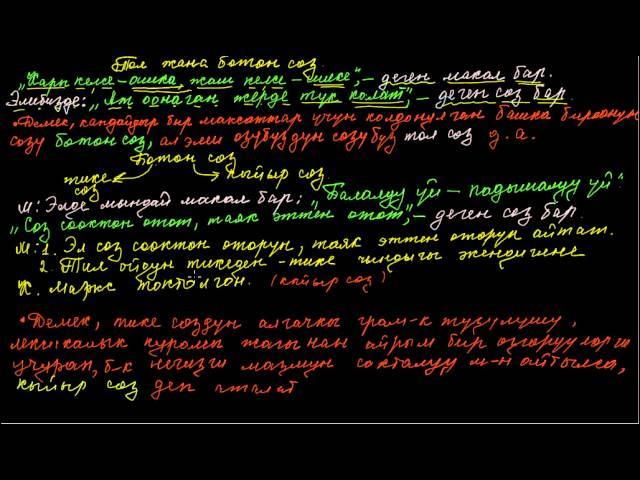 Тол жана ботон сөз.
"Кары келсе – ашка, жаш келсе – ишке", – деген макал бар.
Элибизде: "Ат оонаган жерде түк калат", – деген сөз бар.
• Демек, кандайдыр бир максаттар үчүн колдонулган башка бирөөнүн
сөзү ботон сөз, ал эми өзүбүздүн сөзүбүз тол сөз д.а.
Ботон сөз
тике сөз
кыйыр сөз.
М: Элде мындай макал бар: "Балалуу үй – падышалуу үй".
"Сөз сөөктөн өтөт, таяк эттен өтөт", – деген сөз бар.
М: 1. Эл сөз сөөктөн өтөрүн, таяк эттен өтөрүн айтат.
2. Тил ойдун тикеден-тике чындыгы экендигине
К. Маркс токтолгон. (кыйыр сөз)
• Демек, тике сөздүн алгачкы грам-к түзүлүшү,
лексикалык курамы жагынан айрым бир өзгөрүүлөргө
учурап, б-к негизги мазмун сакталуу м-н айтылса,
кыйыр сөз деп аталат